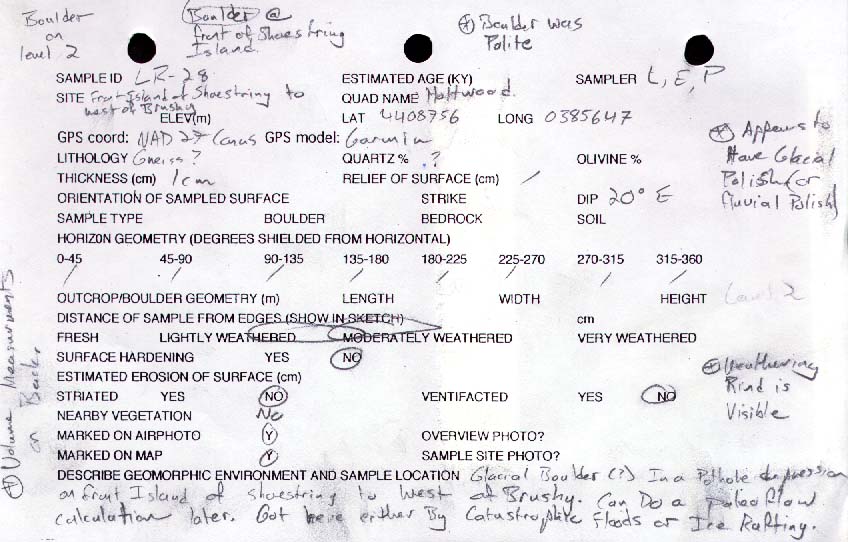 Boulder
on
level 2
Boulder @
front of Shoestring
Island.
* Boulder was
Polite
SAMPLE ID LR-28
ESTIMATED AGE (KY)
SAMPLER L, E, P
SITE Frnt Island of Shoestring to
west of Brushy
QUAD NAME Holtwood.
ELEV(m)
LAT 4408756
LONG 0385647
GPS coord: NAD 27 Conus GPS model: Garmin
* Appears to
Have Glacial
Polish (or
fluvial Polish)
LITHOLOGY Gneiss ?
QUARTZ % ?
OLIVINE %
THICKNESS (cm) 1cm
RELIEF OF SURFACE (cm) /
ORIENTATION OF SAMPLED SURFACE
STRIKE
DIP 20° E
SAMPLE TYPE
BOULDER
BEDROCK
SOIL
HORIZON GEOMETRY (DEGREES SHIELDED FROM HORIZONTAL)
0-45 45-90 90-135 135-180 180-225 225-270 270-315 315-360
/ / / / / / / /
OUTCROP/BOULDER GEOMETRY (m)
LENGTH
WIDTH
HEIGHT Level 2
DISTANCE OF SAMPLE FROM EDGES (SHOW IN SKETCH)
cm
FRESH
LIGHTLY WEATHERED
MODERATELY WEATHERED
VERY WEATHERED
SURFACE HARDENING
YES
NO
ESTIMATED EROSION OF SURFACE (cm)
* Weathering
Rind is
Visible
STRIATED
YES
NO
VENTIFACTED
YES
NO
NEARBY VEGETATION No
MARKED ON AIRPHOTO Y
OVERVIEW PHOTO?
MARKED ON MAP Y
SAMPLE SITE PHOTO?
* Volume Measurments
on Back.
DESCRIBE GEOMORPHIC ENVIRONMENT AND SAMPLE LOCATION Glacial Boulder (?) In a Pothole depression
on frnt Island of shoestring to West of Brushy. Can Do a paleoflow
calculation later. Got here either By Catastrophic floods or Ice Rafting.